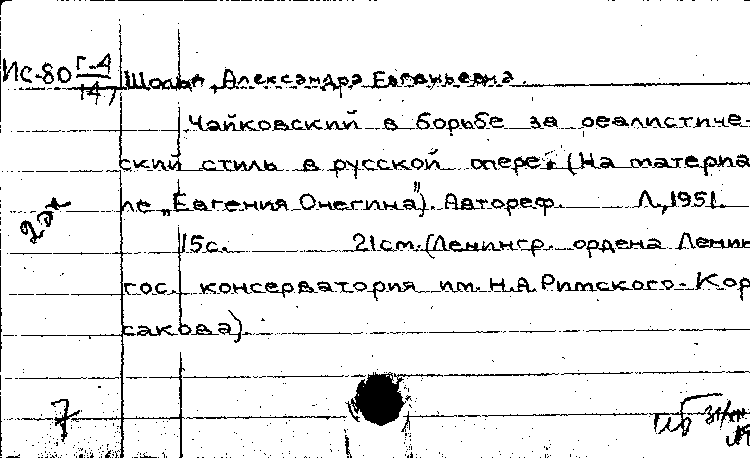 ИС-80 Г-4
147
Шольп, Александра Евгеньевна.
Чайковский в борьбе за реалистиче-
ский стиль в русской опере. (На материа
ле „Евгения Онегина"). Автореф. Л., 1951.
15с. 21см. (Ленингр. ордена Ленин
гос. консерватория им. Н.А. Римского-Кор
сакова).
2эк
7